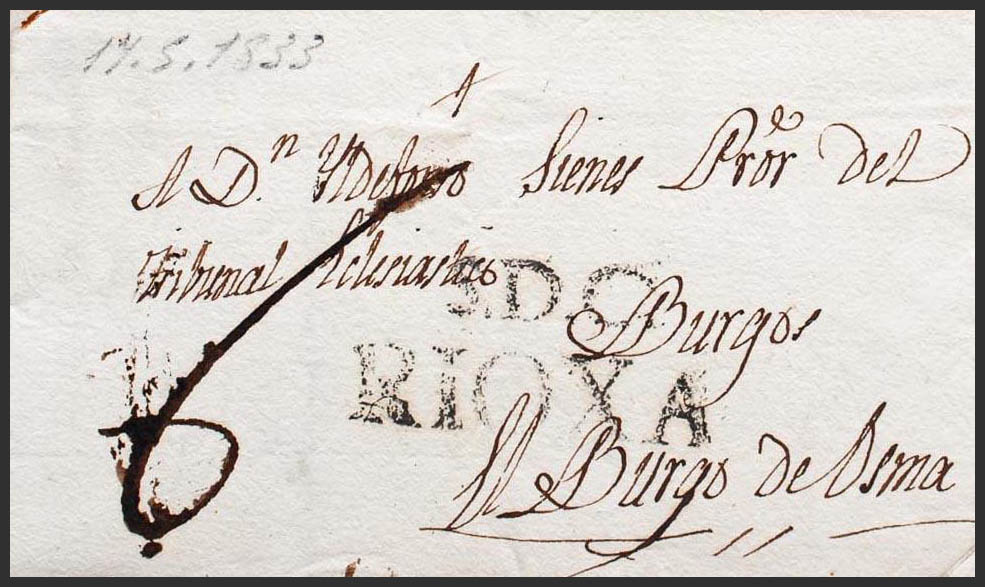 14.5.1833
A Dn. Yldefonso Sienes Pror. del
Tribunal Eclesiastico
S.DO
Burgos
RIOXA
El Burgo de Osma
6